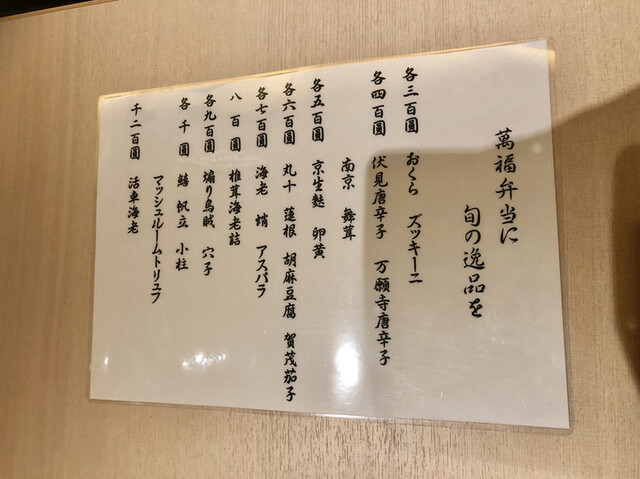 萬福弁当に
旬の逸品を
各三百圓 おくら ズッキーニ
各四百圓 伏見唐辛子 万願寺唐辛子
南京 舞茸
各五百圓 京生麩 卵黄
各六百圓 丸十 蓮根 胡麻豆腐 賀茂茄子
各七百圓 海老 蛸 アスパラ
八百圓 椎茸海老詰
各九百圓 煽り烏賊 穴子
各千圓 鱚 帆立 小柱
マッシュルームトリュフ
千二百圓 活車海老